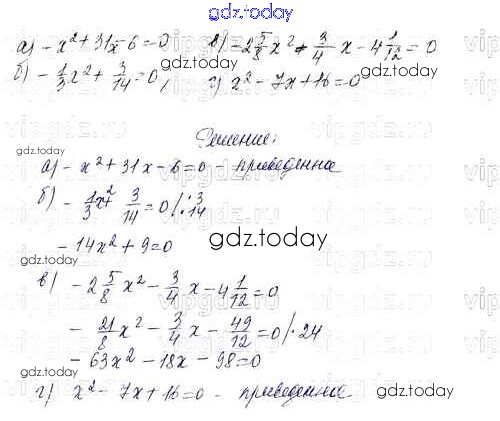 gdz.today
а) - x² + 31x - 6 = 0 в) - 2 5/8 x² - 3/4 x - 4 1/12 = 0
б) - 1/3 x² + 3/14 = 0, г) x² - 7x + 16 = 0
gdz.today gdz.today
Решение:
а) - x² + 31x - 6 = 0 - приведенная
gdz.today
б) - 1/3 x² + 3/14 = 0 / · 3 · 14
- 14x² + 9 = 0
gdz.today
в) - 2 5/8 x² - 3/4 x - 4 1/12 = 0
- 21/8 x² - 3/4 x - 49/12 = 0 / · 24
- 63x² - 18x - 98 = 0
г) x² - 7x + 16 = 0 - приведенная
gdz.today